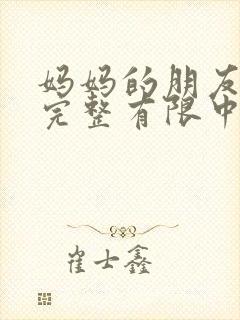 妈妈的朋友
完整有限中
崔士鑫